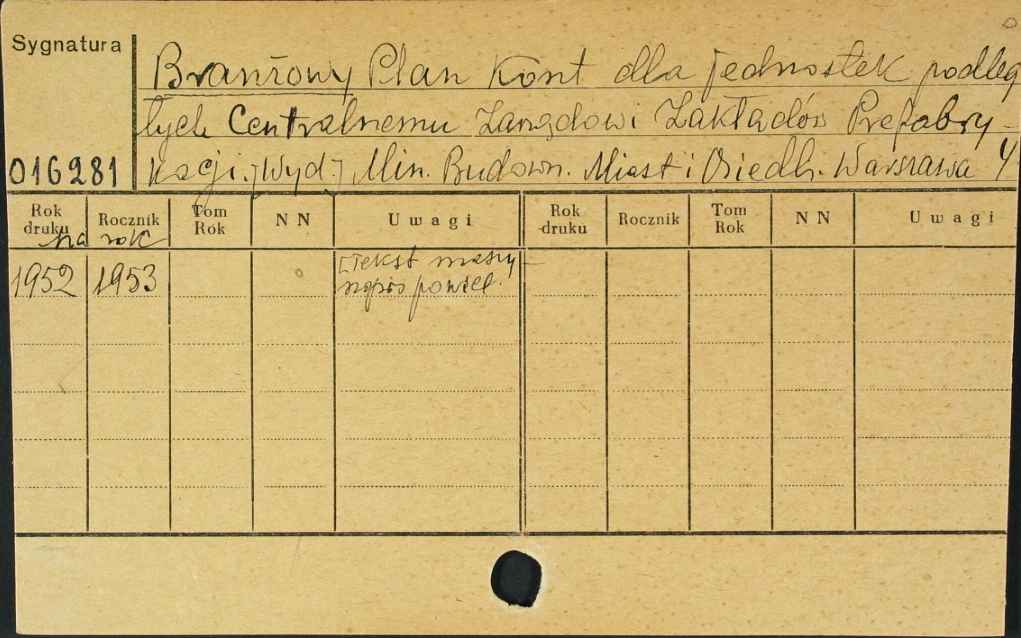 Sygnatura
Branżowy Plan Kont dla jednostek podleg
łych Centralnemu Zarządowi Zakładów Prefabry-
016281 kacji. [Wyd.] Min. Budown. Miast i Osiedli. Warszawa 4°
Rok druku Rocznik Tom Rok NN Uwagi Rok druku Rocznik Tom Rok NN Uwagi
na rok
1952 1953 [Tekst maszy-
nopis powiel.